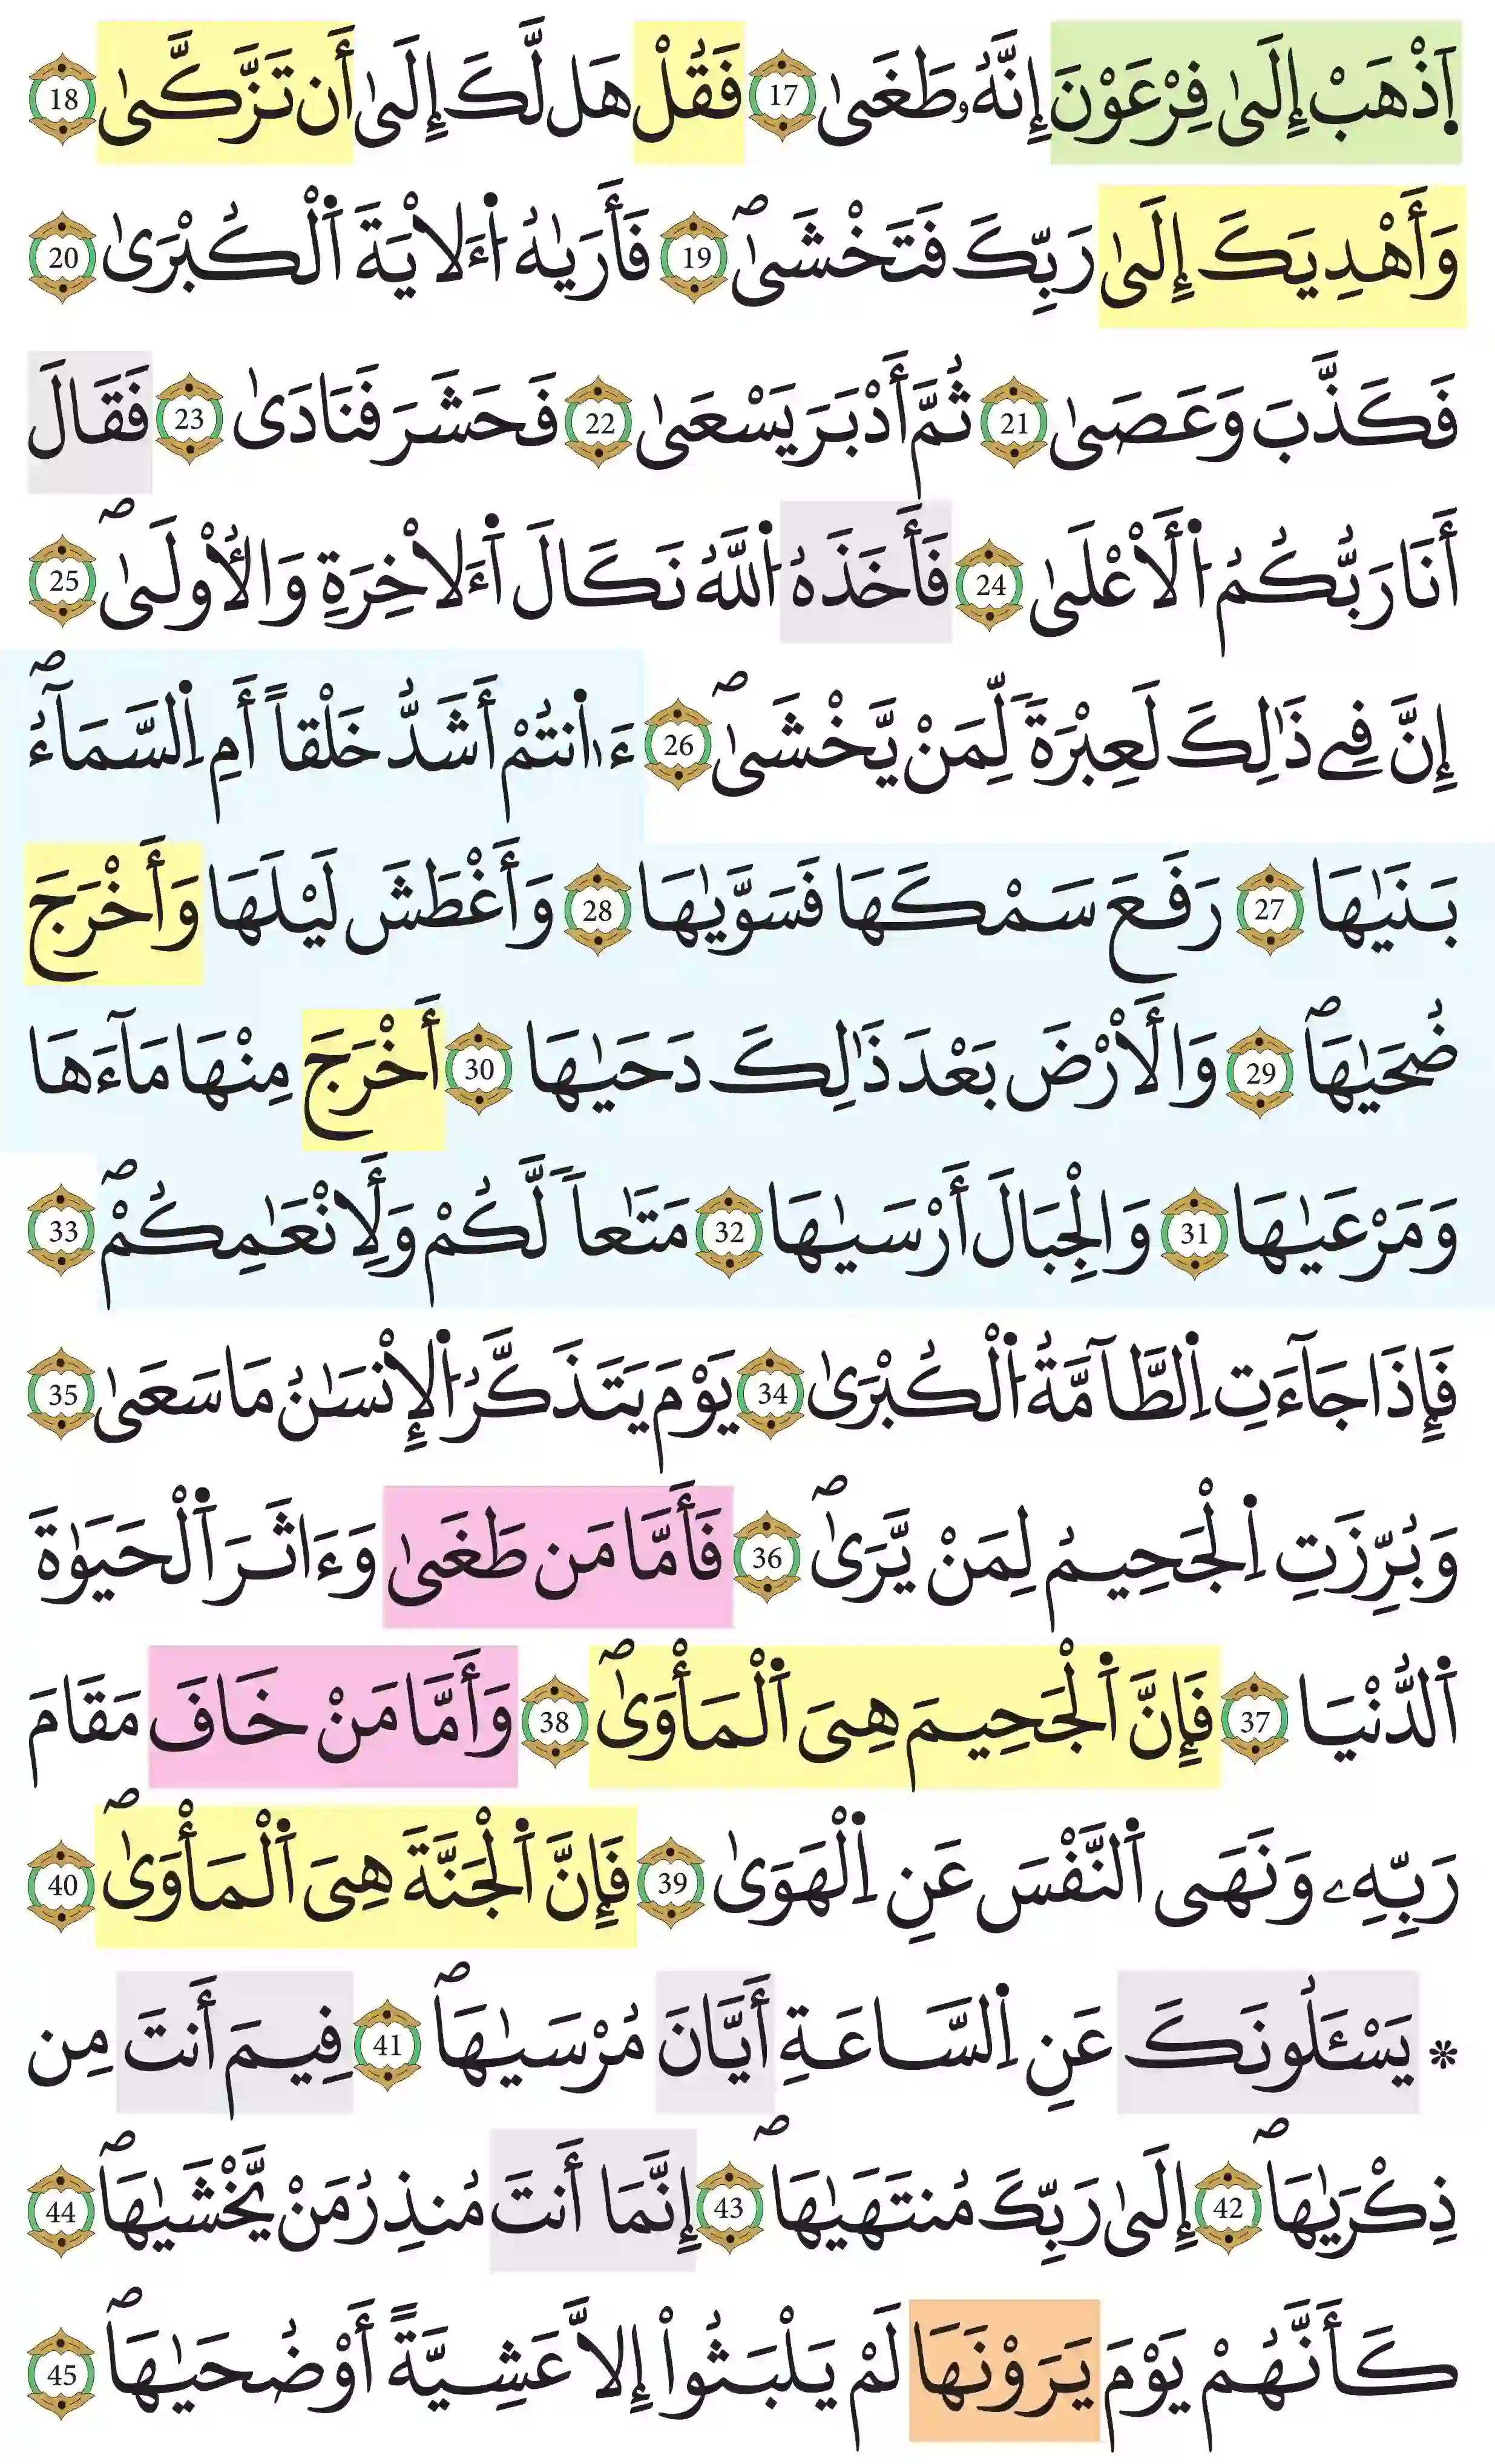 اَ۪ذْهَبْ إِلَىٰ فِرْعَوْنَ إِنَّهُۥ طَغَىٰ 17 فَقُلْ هَل لَّكَ إِلَىٰ أَن تَزَّكَّىٰ 18
وَأَهْدِيَكَ إِلَىٰ رَبِّكَ فَتَخْشَىٰۖ 19 فَأَر۪يٰهُ اُ۬ءَلَايَةَ اَ۬لْكُبْر۪ىٰ 20
فَكَذَّبَ وَعَصَىٰ 21 ثُمَّ أَدْبَرَ يَسْعَىٰ 22 فَحَشَرَ فَنَادَىٰ 23 فَقَالَ
أَنَا رَبُّكُمُ اُ۬لَأَعْلَىٰ 24 فَأَخَذَهُ اُ۬للَّهُ نَكَالَ اَ۬ءَلَاخِرَةِ وَالُاولَىٰۖ 25
إِنَّ فِے ذَٰلِكَ لَعِبْرَةٗ لِّمَنْ يَّخْشَىٰۖ 26 ءَا۬نتُمْ أَشَدُّ خَلْقاً أَمِ اِ۬لسَّمَآءُۖ
بَنَيٰهَا 27 رَفَعَ سَمْكَهَا فَسَوَّيٰهَا 28 وَأَغْطَشَ لَيْلَهَا وَأَخْرَجَ
ضُحَيٰهَاۖ 29 وَالَأَرْضَ بَعْدَ ذَٰلِكَ دَحَيٰهَا 30 أَخْرَجَ مِنْهَا مَآءَهَا
وَمَرْعَيٰهَا 31 وَالْجِبَالَ أَرْسَيٰهَا 32 مَتَٰعاٗ لَّكُمْ وَلِأَنْعَٰمِكُمْۖ 33
فَإِذَا جَآءَتِ اِ۬لطَّآمَّةُ اُ۬لْكُبْرَىٰ 34 يَوْمَ يَتَذَكَّرُ اُ۬لْإِنْسَٰنُ مَا سَعَىٰ 35
وَبُرِّزَتِ اِ۬لْجَحِيمُ لِمَنْ يَّرَىٰۖ 36 فَأَمَّا مَن طَغَىٰ وَءَاثَرَ اَ۬لْحَيَوٰةَ
اَ۬لدُّنْيَا 37 فَإِنَّ اَ۬لْجَحِيمَ هِىَ اَ۬لْمَأْوَىٰۖ 38 وَأَمَّا مَنْ خَافَ مَقَامَ
رَبِّهِۦ وَنَهَى اَ۬لنَّفْسَ عَنِ اِ۬لْهَوَىٰ 39 فَإِنَّ اَ۬لْجَنَّةَ هِىَ اَ۬لْمَأْوَىٰۖ 40
* يَسْـَٔلُونَكَ عَنِ اِ۬لسَّاعَةِ أَيَّانَ مُرْسَيٰهَاۖ 41 فِيمَ أَنتَ مِن
ذِكْرَيٰهَاۖ 42 إِلَىٰ رَبِّكَ مُنتَهَيٰهَاۖ 43 إِنَّمَا أَنتَ مُنذِرُ مَنْ يَّخْشَيٰهَاۖ 44
كَأَنَّهُمْ يَوْمَ يَرَوْنَهَا لَمْ يَلْبَثُواْ إِلَّا عَشِيَّةً أَوْ ضُحَيٰهَاۖ 45